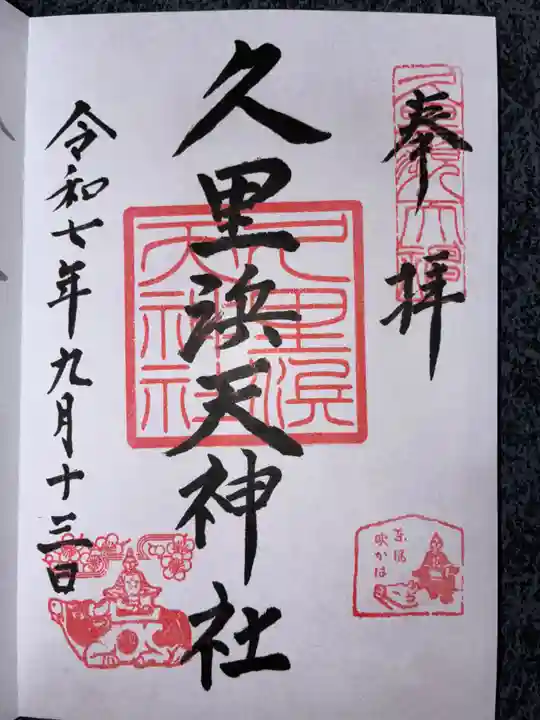 奉拝
久里浜天神社
令和七年九月十三日
久里浜天神社
東風
吹かは